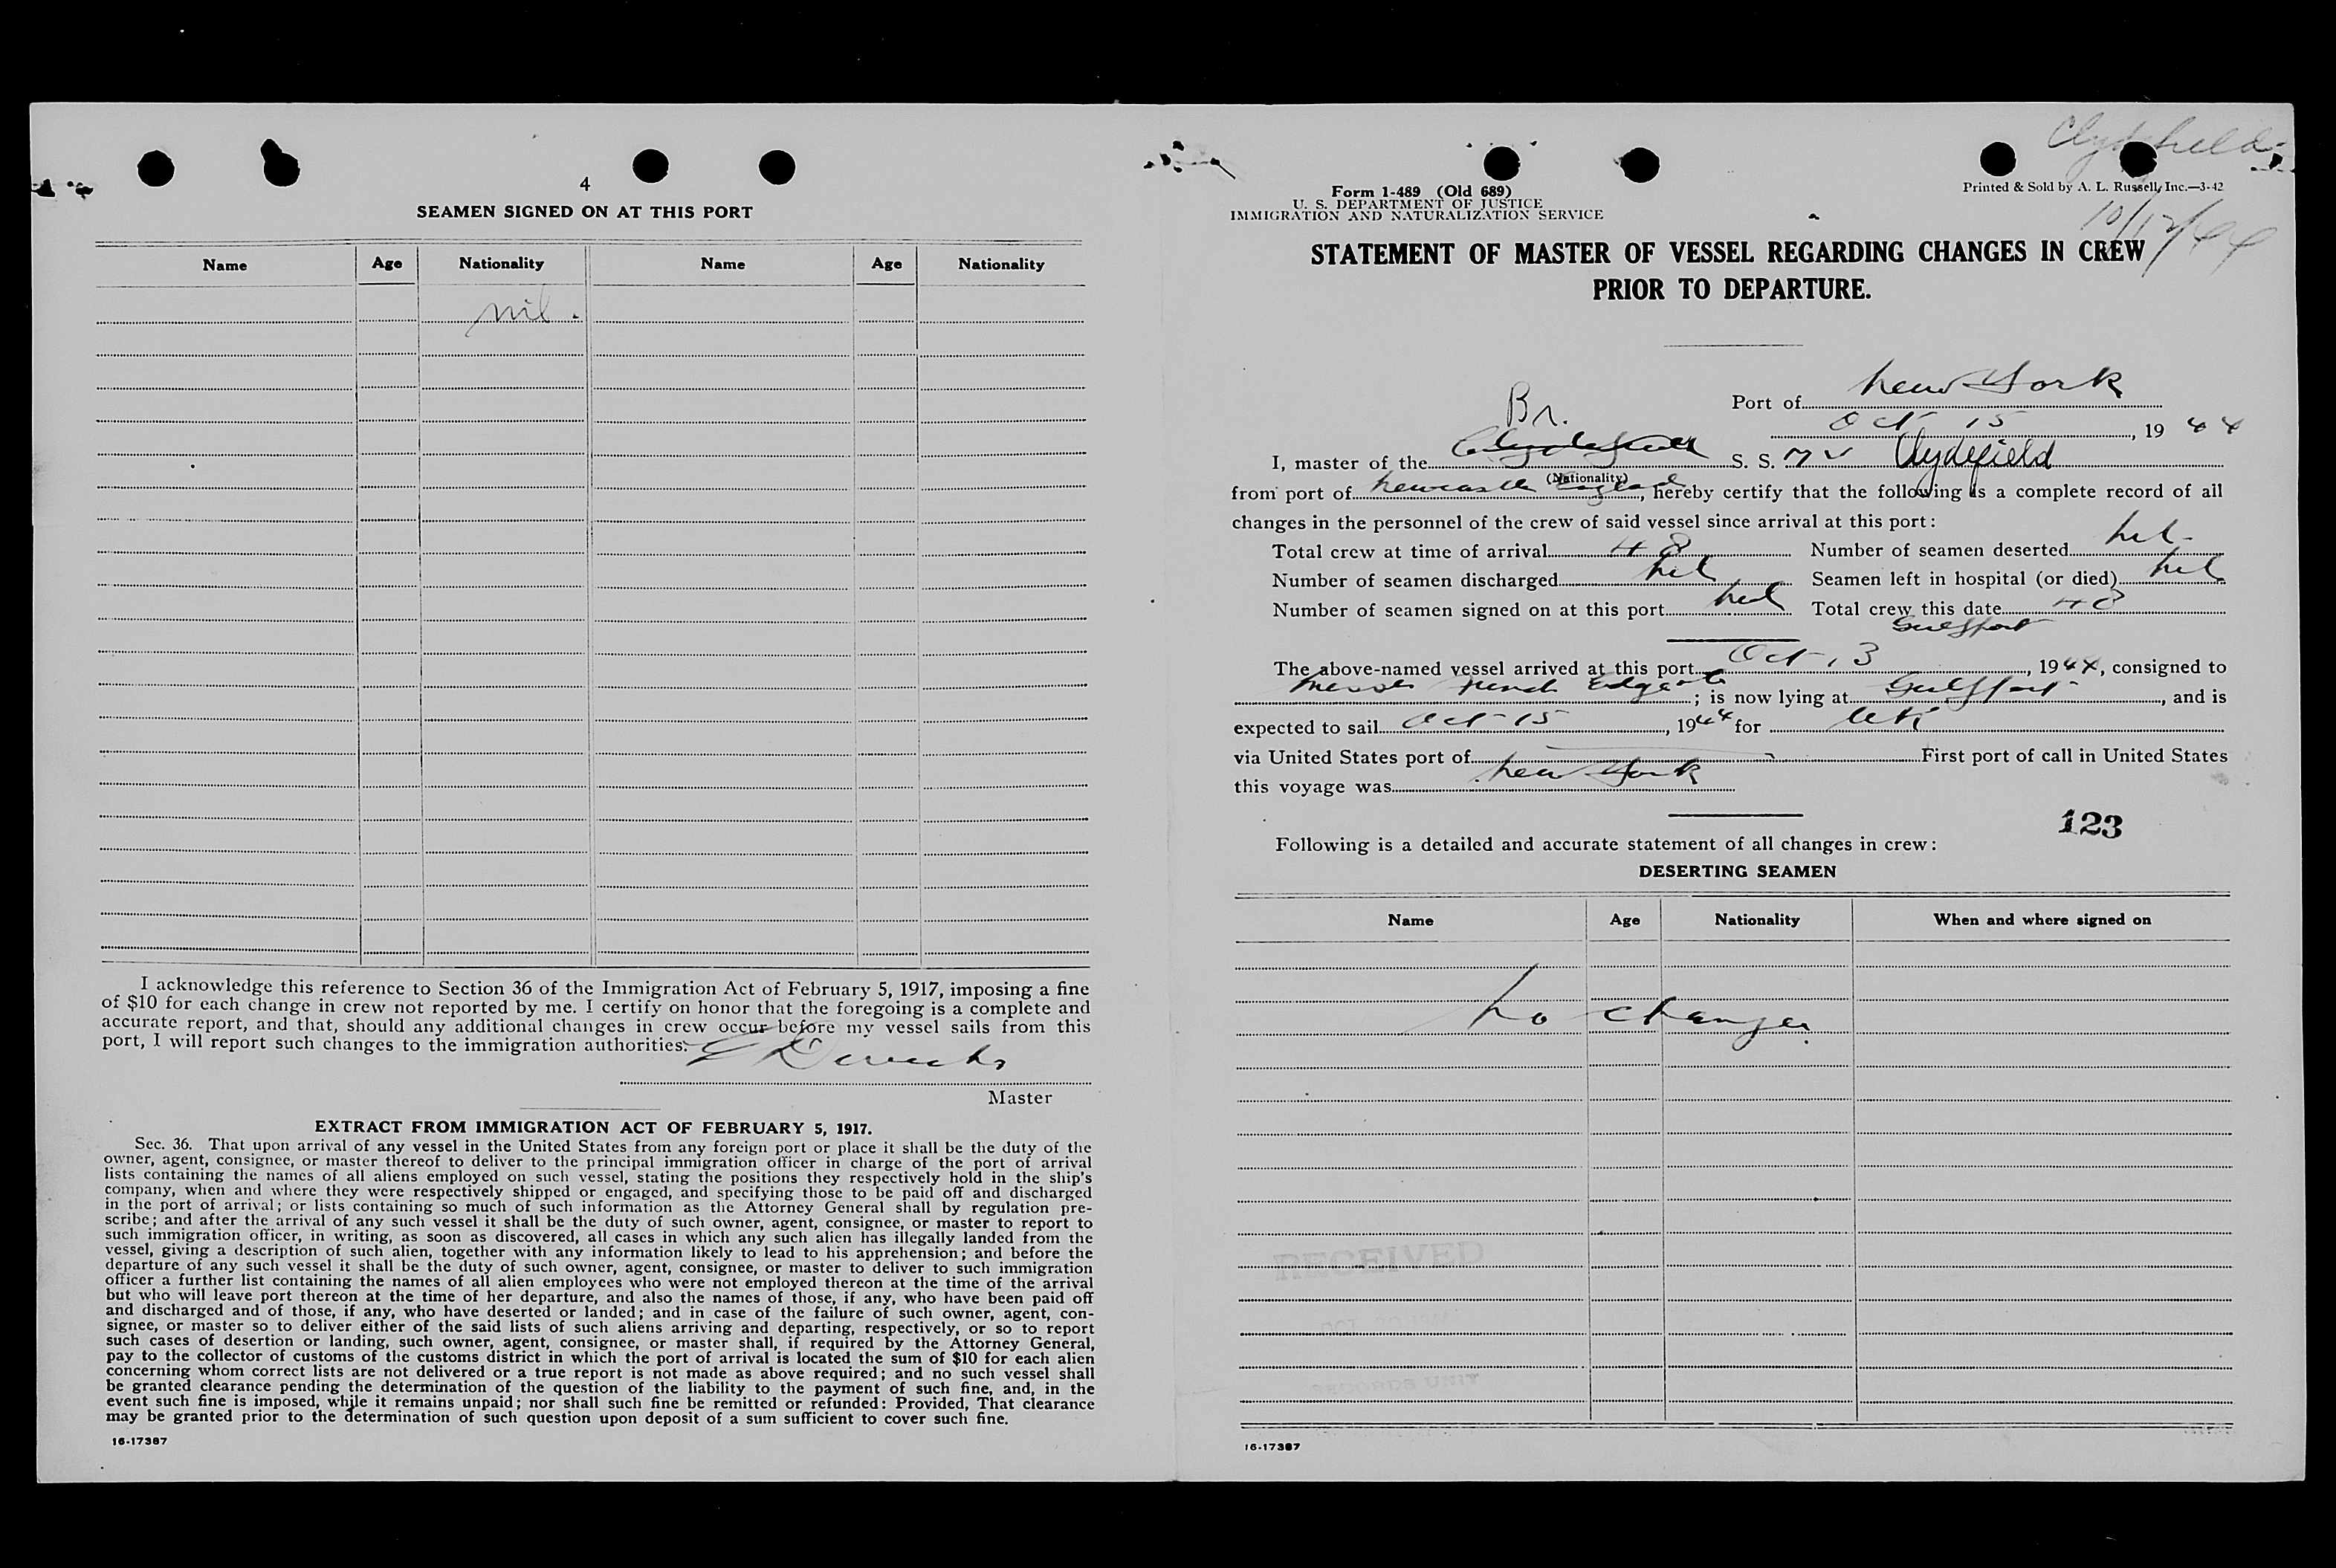 4
SEAMEN SIGNED ON AT THIS PORT
Name Age Nationality Name Age Nationality
nil.
I acknowledge this reference to Section 36 of the Immigration Act of February 5, 1917, imposing a fine
of $10 for each change in crew not reported by me. I certify on honor that the foregoing is a complete and
accurate report, and that, should any additional changes in crew occur before my vessel sails from this
port, I will report such changes to the immigration authorities.
Master
EXTRACT FROM IMMIGRATION ACT OF FEBRUARY 5, 1917.
Sec. 36. That upon arrival of any vessel in the United States from any foreign port or place it shall be the duty of the
owner, agent, consignee, or master thereof to deliver to the principal immigration officer in charge of the port of arrival
lists containing the names of all aliens employed on such vessel, stating the positions they respectively hold in the ship's
company, when and where they were respectively shipped or engaged, and specifying those to be paid off and discharged
in the port of arrival; or lists containing so much of such information as the Attorney General shall by regulation pre-
scribe; and after the arrival of any such vessel it shall be the duty of such owner, agent, consignee, or master to report to
such immigration officer, in writing, as soon as discovered, all cases in which any such alien has illegally landed from the
vessel, giving a description of such alien, together with any information likely to lead to his apprehension; and before the
departure of any such vessel it shall be the duty of such owner, agent, consignee, or master to deliver to such immigration
officer a further list containing the names of all alien employees who were not employed thereon at the time of the arrival
but who will leave port thereon at the time of her departure, and also the names of those, if any, who have been paid off
and discharged and of those, if any, who have deserted or landed; and in case of the failure of such owner, agent, con-
signee, or master so to deliver either of the said lists of such aliens arriving and departing, respectively, or so to report
such cases of desertion or landing, such owner, agent, consignee, or master shall, if required by the Attorney General,
pay to the collector of customs of the customs district in which the port of arrival is located the sum of $10 for each alien
concerning whom correct lists are not delivered or a true report is not made as above required; and no such vessel shall
be granted clearance pending the determination of the question of the liability to the payment of such fine, and, in the
event such fine is imposed, while it remains unpaid; nor shall such fine be remitted or refunded: Provided, That clearance
may be granted prior to the determination of such question upon deposit of a sum sufficient to cover such fine.
16-17387
Clydefield
Form 1-489 (Old 689)
U. S. DEPARTMENT OF JUSTICE
IMMIGRATION AND NATURALIZATION SERVICE
Printed & Sold by A. L. Russell, Inc.—3-42
10/12/44
STATEMENT OF MASTER OF VESSEL REGARDING CHANGES IN CREW
PRIOR TO DEPARTURE.
Port of New York
Oct 15, 1944
Br.
I, master of the Clydefield S. S. MV Clydefield
(Nationality)
from port of Newcastle England, hereby certify that the following is a complete record of all
changes in the personnel of the crew of said vessel since arrival at this port:
Total crew at time of arrival 48 Number of seamen deserted nil
Number of seamen discharged nil Seamen left in hospital (or died) nil
Number of seamen signed on at this port nil Total crew this date 48
Gulfport
The above-named vessel arrived at this port Oct 13, 1944, consigned to
Messrs Furness; is now lying at Gulfport, and is
expected to sail Oct 15, 1944 for UK
via United States port of First port of call in United States
this voyage was New York
123
Following is a detailed and accurate statement of all changes in crew:
DESERTING SEAMEN
Name Age Nationality When and where signed on
No changes.
RECEIVED
RECORDS UNIT
16-17387